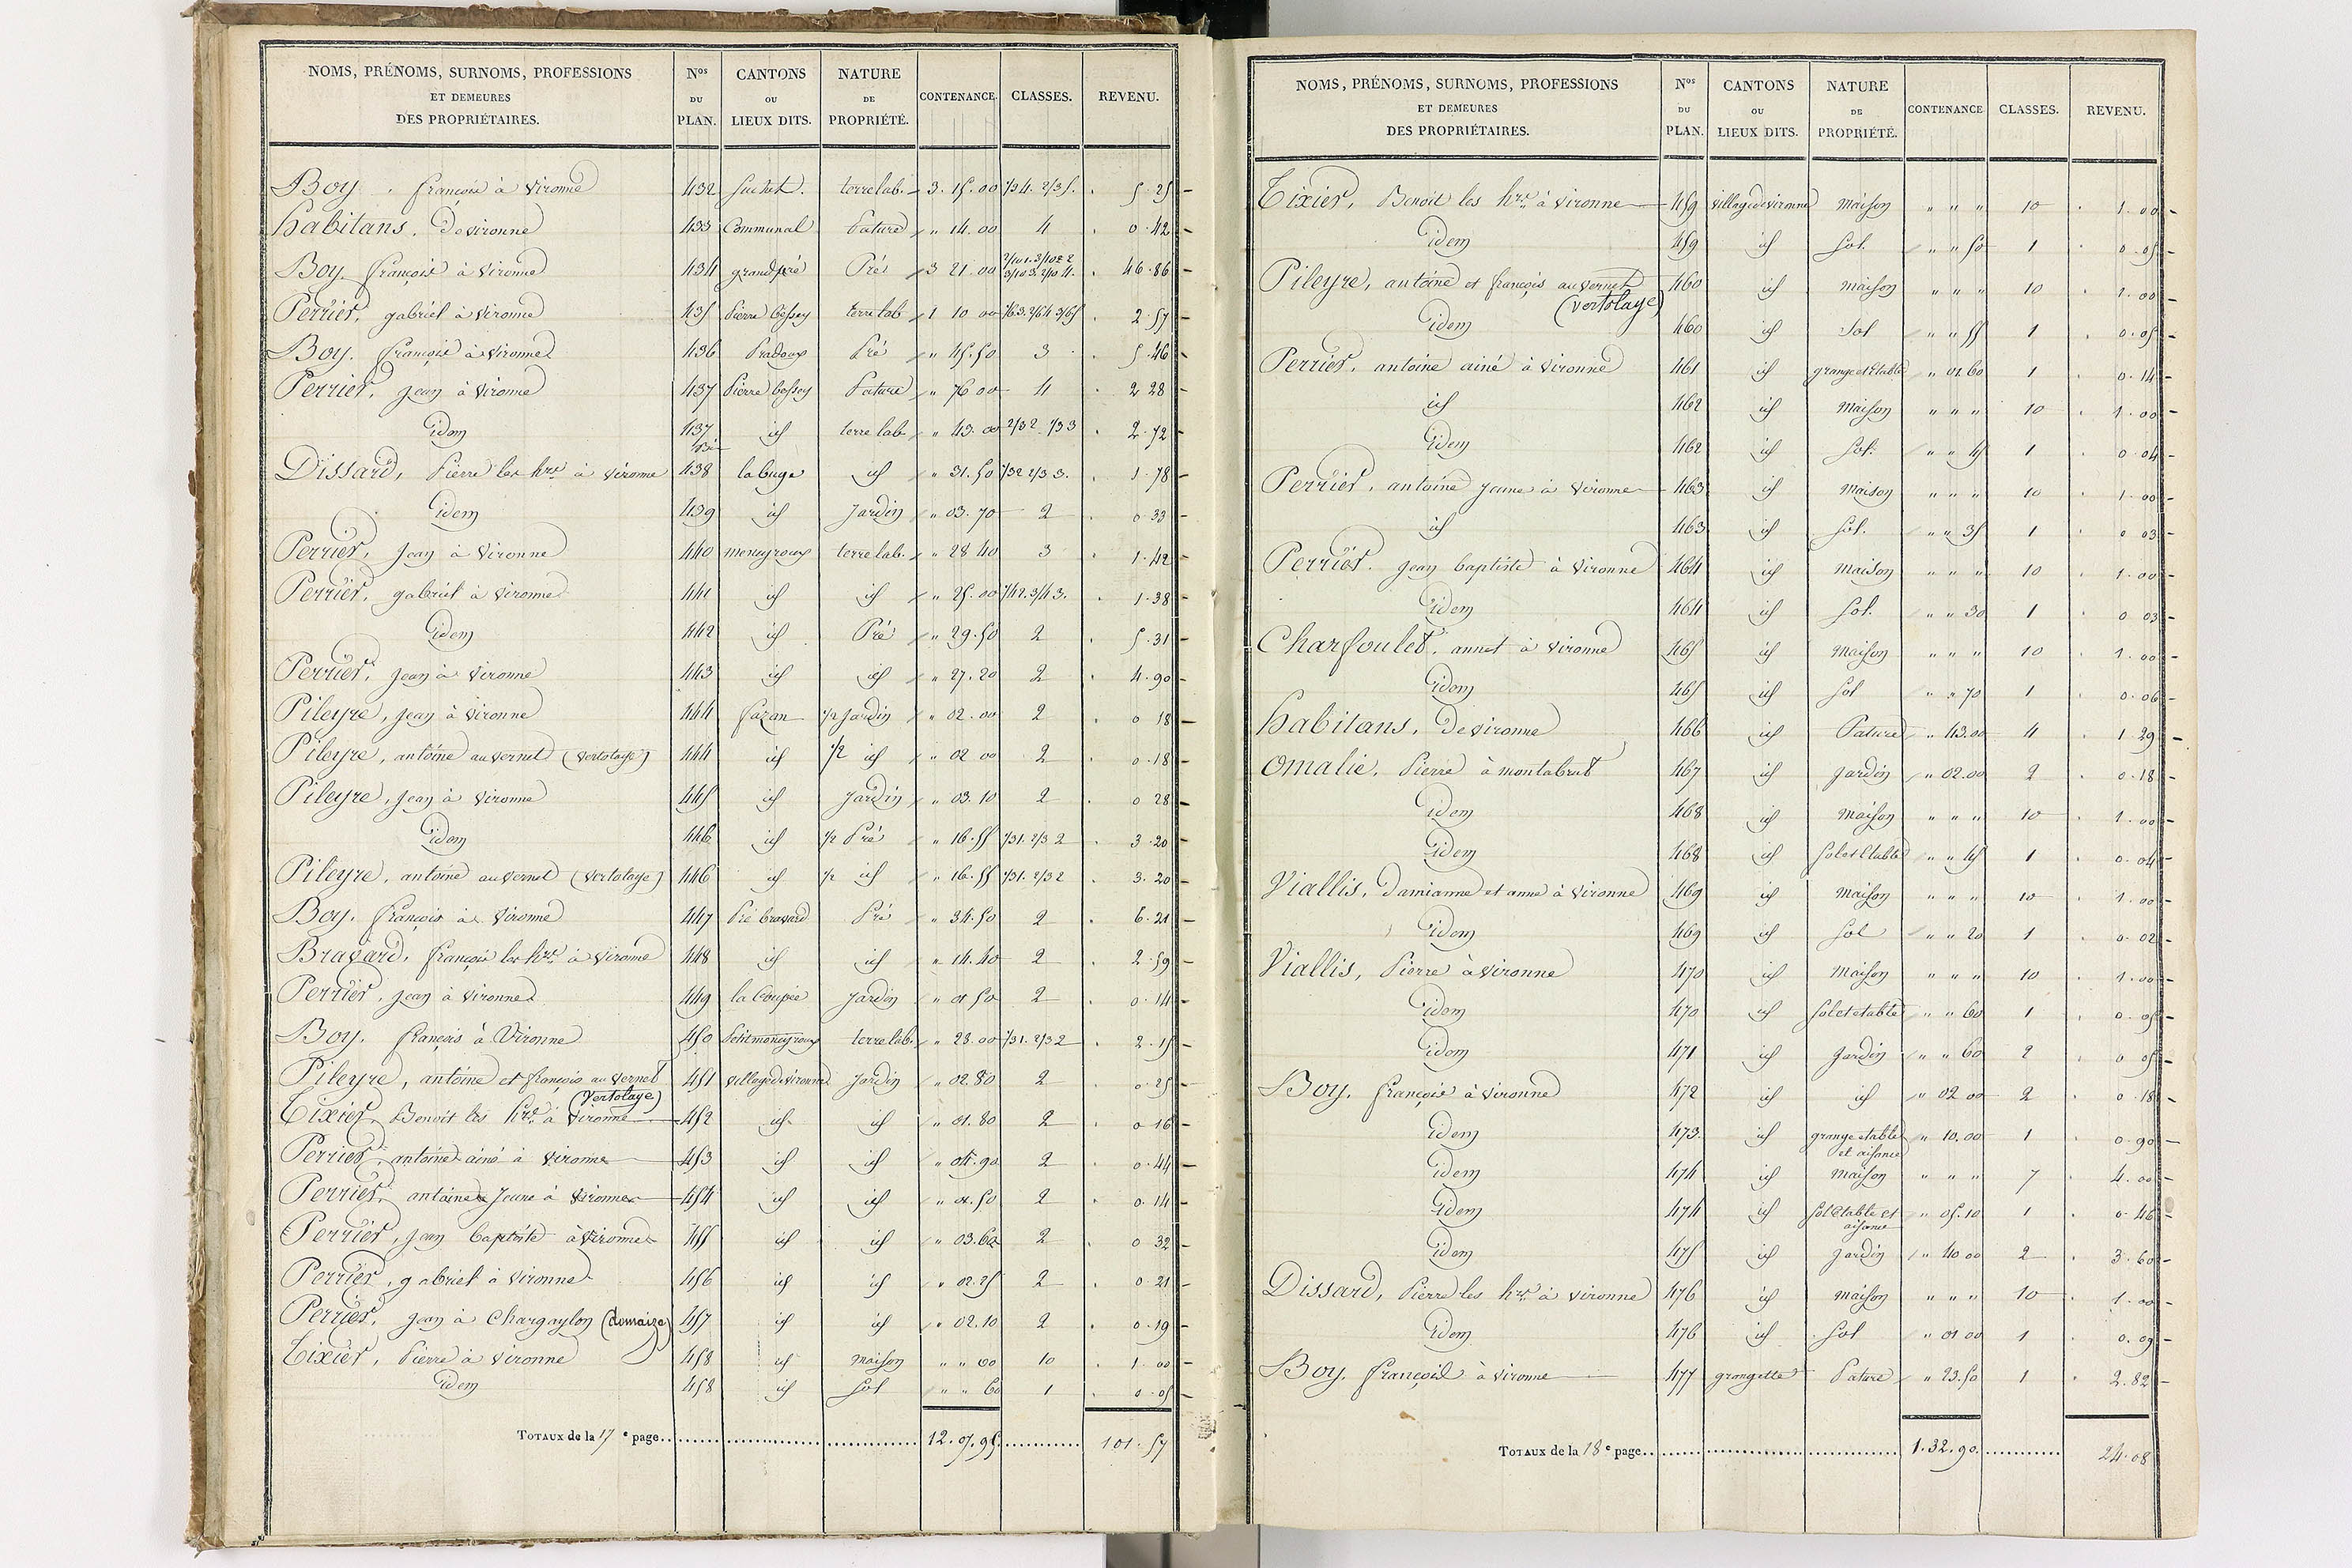 NOMS, PRÉNOMS, SURNOMS, PROFESSIONS ET DEMEURES DES PROPRIÉTAIRES. Nos DU PLAN. CANTONS OU LIEUX DITS. NATURE DE PROPRIÉTÉ. CONTENANCE. CLASSES. REVENU.
Boy. françois à Vironne 432 terre lab. 3. 15. 00 5. 25
habitans. De vironne 433 Communal Pature " 14. 00 4 0. 42
Boy françois à Vironne 434 grand pré Pré 3 21. 00 46. 86
Perrier, gabriel à Vironne 435 Pierre bessey terre lab 1 10 00 2. 57
Boy. françois à Vironne 436 Pradoux Pré " 45. 50 3 5. 46
Perrier, jean à Vironne 437 Pierre bessey Pature " 76 00 4 2 28
idem 437 bis id terre lab " 43. 00 2/3 2 1/3 3 2. 72
Dissard, Pierre les hrs à vironne 438 la buge id " 31. 50 1/3 2 2/3 3. 1. 78
idem 439 id Jardin " 03. 70 2 0 33
Perrier, Jean à Vironne 440 moneyroux terre lab. " 28 40 3 1. 42
Perrier, gabriel à Vironne 441 id id " 25. 00 1/4 2. 3/4 3. 1. 38
idem 442 id Pré " 29. 50 2 5. 31
Perrier, jean à Vironne 443 id id " 27. 20 2 4. 90
Pileyre, jean à Vironne 444 fazan 1/2 jardin " 02. 00 2 0 18
Pileyre, antoine au vernet (vertolaye) 444 id 1/2 id " 02 00 2 0. 18
Pileyre, Jean à Vironne 445 id Jardin " 03. 10 2 0 28
idem 446 id 1/2 Pré " 16. 55 1/3 1. 2/3 2 3. 20
Pileyre, antoine au vernet (vertolaye) 446 id 1/2 id " 16. 55 1/3 1. 2/3 2 3. 20
Boy. françois à Vironne 447 Pré bravard Pré " 34. 50 2 6. 21
Bravard, françois les hrs à Vironne 448 id id " 14. 40 2 2. 59
Perrier, jean à Vironne 449 la Coupée Jardin " 01 50 2 0. 14
Boy. françois à Vironne 450 Petit moneyroux terre lab. " 23. 00 1/3 1. 2/3 2 2. 15
Pileyre, antoine et françois au vernet (Vertolaye) 451 village de vironne Jardin " 02. 80 2 0. 25
Tixier, Benoit les hrs à Vironne 452 id id " 01. 80 2 0 16
Perrier, antoine ainé à Vironne 453 id id " 04. 90 2 0. 44
Perrier, antoine Jeune à Vironne 454 id id " 01. 50 2 0. 14
Perrier, jean baptiste à Vironne 455 id id " 03. 60 2 0 32
Perrier, gabriel à Vironne 456 id id " 02. 25 2 0. 21
Perrier, jean à Chargaylon (domaize) 457 id id " 02. 10 2 0. 19
Tixier, Pierre à Vironne 458 id maison " " 00 10 1. 00
idem 458 id Sol " " 60 1 0. 05
TOTAUX de la 17e page 12. 07. 95. 101. 57
NOMS, PRÉNOMS, SURNOMS, PROFESSIONS ET DEMEURES DES PROPRIÉTAIRES. Nos DU PLAN. CANTONS OU LIEUX DITS. NATURE DE PROPRIÉTÉ. CONTENANCE CLASSES. REVENU.
Tixier, Benoit les hrs à vironne 459 village de vironne Maison " " " 10 1. 00
idem 459 id Sol. " " 50 1 0. 05
Pileyre, antoine et françois au vernet (vertolaye) 460 id Maison " " " 10 1. 00
idem 460 id Sol " " 55 1 0. 05
Perrier, antoine ainé à Vironne 461 id grange et Etable " 01. 60 1 0. 14
id 462 id Maison " " " 10 1. 00
idem 462 id Sol. " " 45 1 0 04
Perrier, antoine Jeune à Vironne 463 id Maison " " " 10 1. 00
id 463 id Sol. " " 35 1 0 03
Perrier. jean baptiste à Vironne 464 id Maison " " " 10 1. 00
idem 464 id Sol. " " 30 1 0 03
Charfoulet. annet à vironne 465 id Maison " " " 10 1. 00
idem 465 id Sol " " 70 1 0. 06
habitans, De vironne 466 id Pature " 43. 00 4 1 29
Omalie, Pierre à montabrut 467 id Jardin " 02. 00 2 0. 18
idem 468 id Maison " " " 10 1. 00
idem 468 id Sol et Etable " " 45 1 0. 04
Viallis, Damianne et anne à Vironne 469 id Maison " " " 10 1. 00
idem 469 id Sol " " 20 1 0. 02
Viallis, Pierre à Vironne 470 id Maison " " " 10 1. 00
idem 470 id Sol et etable " " 60 1 0. 05
idem 471 id Jardin " " 60 2 0 05
Boy. françois à Vironne 472 id id " 02 00 2 0 18
idem 473. id grange etable et aisance " 10. 00 1 0. 90
idem 474 id Maison " " " 7 4. 00
idem 474 id Sol Etable et aisance " 05. 10 1 0. 46
idem 475 id Jardin " 40 00 2 3. 60
Dissard, Pierre les hrs à vironne 476 id Maison " " " 10 1. 00
idem 476 id Sol " 01 00 1 0. 09
Boy. françois à vironne 477 grangette Pature " 23. 50 1 2. 82
TOTAUX de la 18e page 1. 32. 90. 24. 08